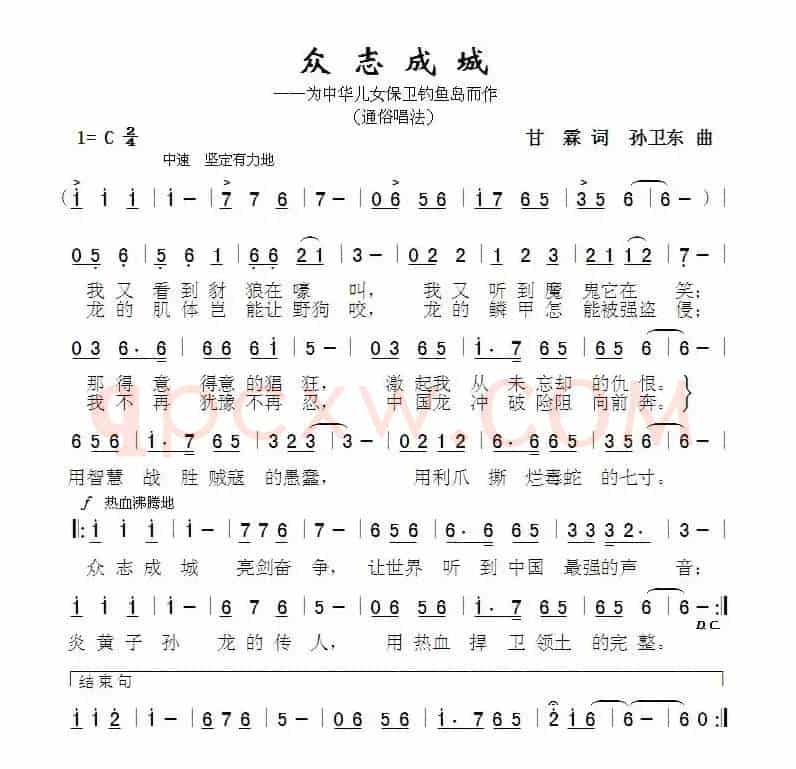 众志成城
——为中华儿女保卫钓鱼岛而作
（通俗唱法）
1= C 2/4 甘 霖 词 孙卫东 曲
中速 坚定有力地
（i i i | i – | 7 7 6 | 7 – | 0 6 5 6 | i 7 6 5 | 3 3 5 6 | 6 – ）|
0 5 6 | 5 6 1 | 6 6 2 1 | 3 – | 0 2 2 | 1 2 3 | 2 1 1 2 | 7 – |
我 又 看 到 豺 狼在 嚎 叫， 我 又 听 到 魔 鬼它在 笑；
龙 的 肌 体 岂 能让 野狗 咬， 龙 的 鳞 甲 怎 能被强盗 侵；
0 3 6· 6 | 6 6 6 i | 5 – | 0 3 6 5 | i· 7 6 5 | 3 5 6 | 6 – |
那 得 意 得意 的 猖 狂， 激 起我 从 未 忘却 的仇 恨。
我 不 再 犹豫 不再 忍， 中 国龙 冲 破 险阻 向前 奔。
6 5 6 | i· 7 6 5 | 3 2 3 | 3 – | 0 2 1 2 | 6· 6 6 5 | 3 5 6 | 6 – |
用智慧 战 胜 贼寇 的愚蠢， 用利爪 撕 烂毒蛇 的七寸。
f 热血沸腾地
‖: i i i | i – | 7 7 6 | 7 – | 6 5 6 | 6· 6 6 5 | 3 3 3 2· | 3 – |
众 志 成 城 亮剑奋 争， 让世界 听 到中国 最强的声 音；
i i i | i – | 6 7 6 | 5 – | 0 6 5 6 | i· 7 6 5 | 6 i 6 | 6 – :‖
D.C.
炎 黄 子 孙 龙 的 传 人， 用 热血 捍 卫 领土 的 完 整。
结 束 句
i i 2 | i – | 6 7 6 | 5 – | 0 6 5 6 | i· 7 6 5 | 2 i 6 | 6 – | 6 0 :‖
qpcxw.COM